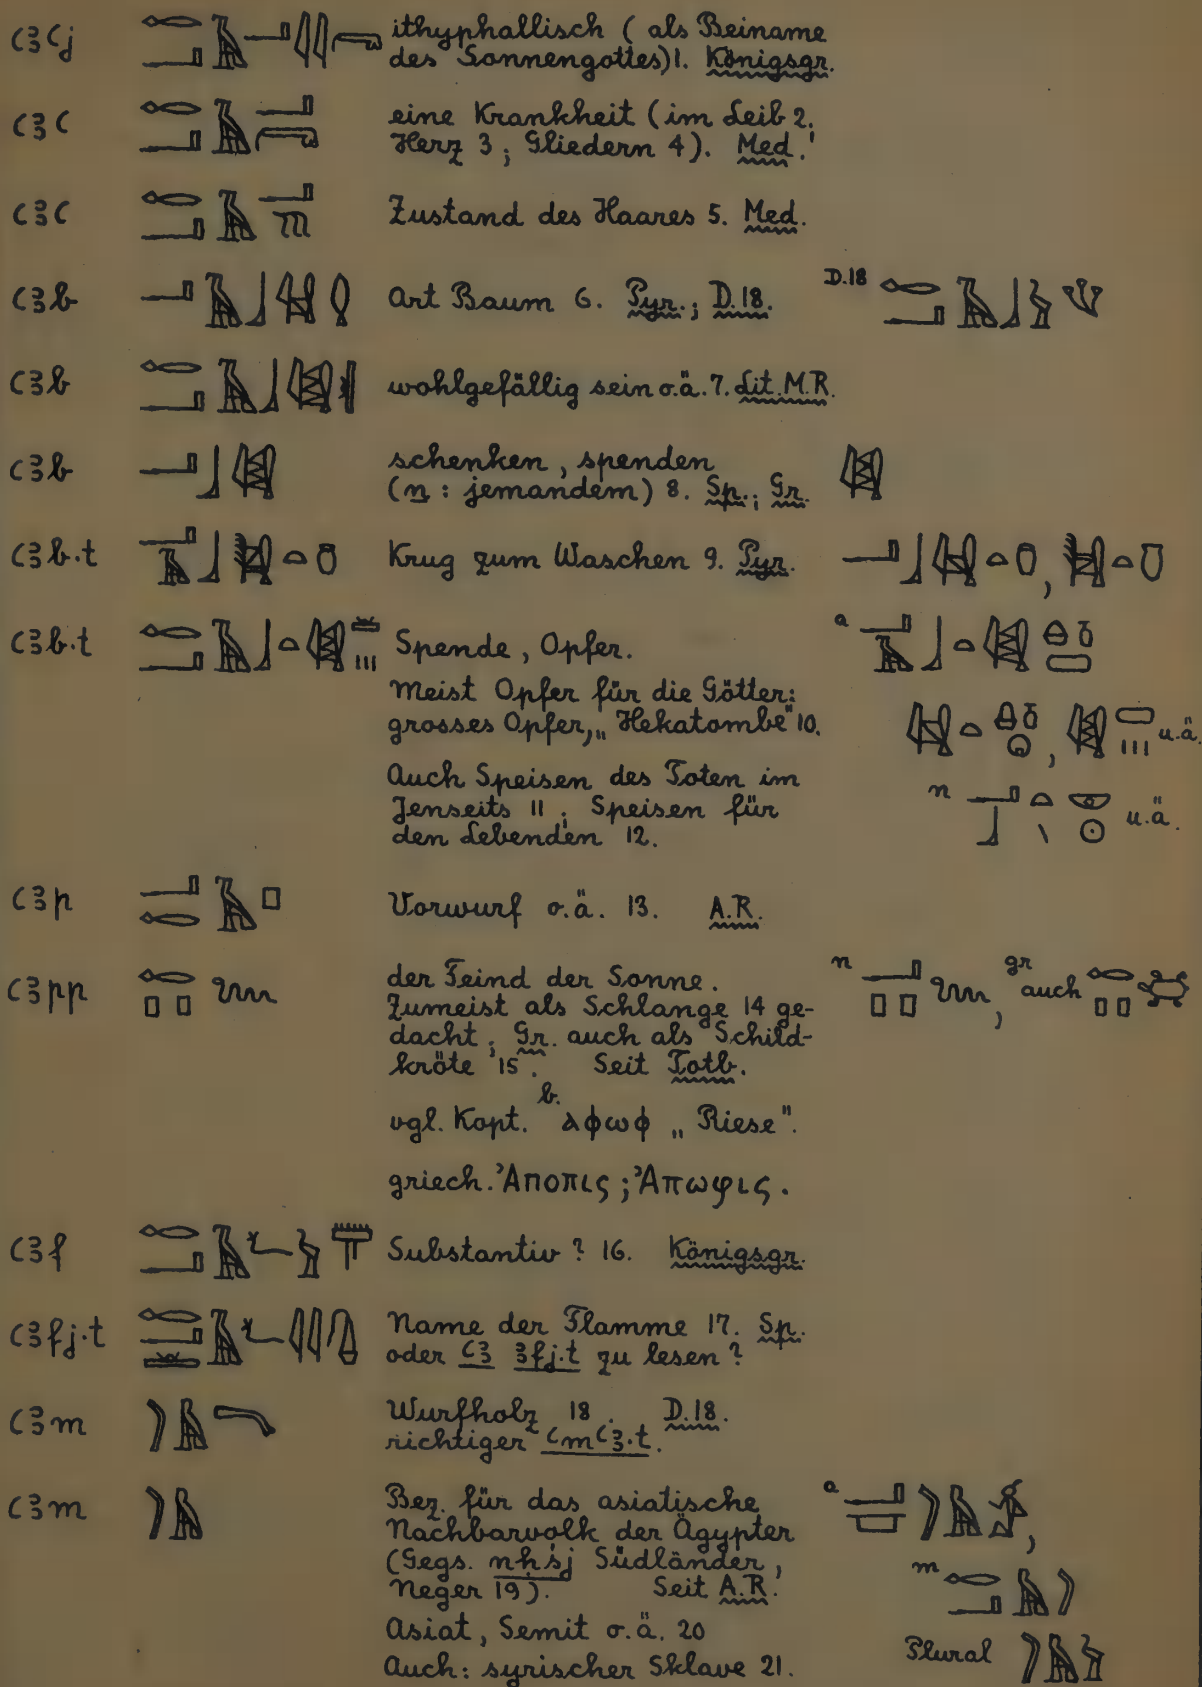 ꜥꜣꜥj ithyphallisch (als Beiname
des Sonnengottes) 1. Königsgr.
ꜥꜣꜥ eine Krankheit (im Leib 2.
Herz 3; Gliedern 4). Med.
ꜥꜣꜥ Zustand des Haares 5. Med.
ꜥꜣb Art Baum 6. Pyr.; D.18. D.18
ꜥꜣb wohlgefällig sein o.ä. 7. Lit. M.R.
ꜥꜣb schenken, spenden
(n : jemandem) 8. Sp.; Gr.
ꜥꜣb.t Krug zum Waschen 9. Pyr. ,
ꜥꜣb.t Spende, Opfer. a
Meist Opfer für die Götter:
grosses Opfer, „Hekatombe" 10. , u.ä.
Auch Speisen des Toten im
Jenseits 11; Speisen für
den Lebenden 12. n u.ä.
ꜥꜣp Vorwurf o.ä. 13. A.R.
ꜥꜣpp der Feind der Sonne. n , gr auch
Zumeist als Schlange 14 ge-
dacht; Gr. auch als Schild-
kröte 15. Seit Totb.
vgl. Kopt. b. ⲁⲫⲱⲫ „Riese".
griech. Ἀποπις; Ἀπωφις.
ꜥꜣf Substantiv? 16. Königsgr.
ꜥꜣfj.t Name der Flamme 17. Sp.
oder ꜥꜣ ꜣfj.t zu lesen?
ꜥꜣm Wurfholz 18. D.18.
richtiger ꜥmꜥꜣ.t.
ꜥꜣm Bez. für das asiatische a ,
Nachbarvolk der Ägypter
(Gegs. nḥśj Südländer,
Neger 19). Seit A.R. m
Asiat, Semit o.ä. 20
Auch: syrischer Sklave 21. Plural